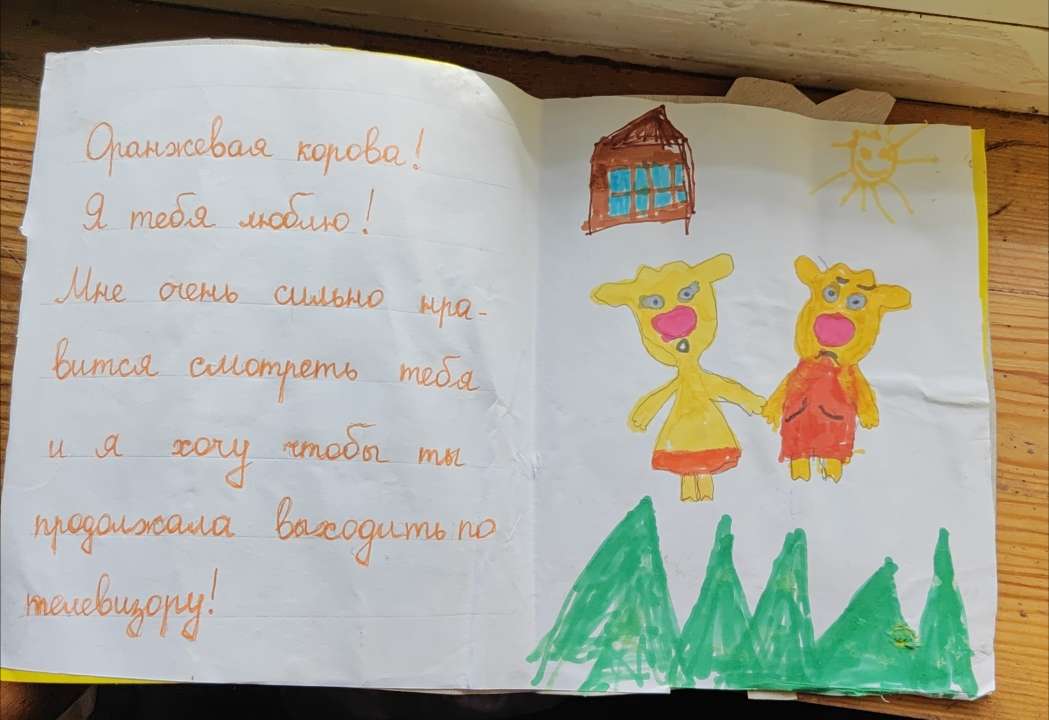 Оранжевая корова!
Я тебя люблю!
Мне очень сильно нра-
вится смотреть тебя
и я хочу чтобы ты
продолжала выходить по
телевизору!